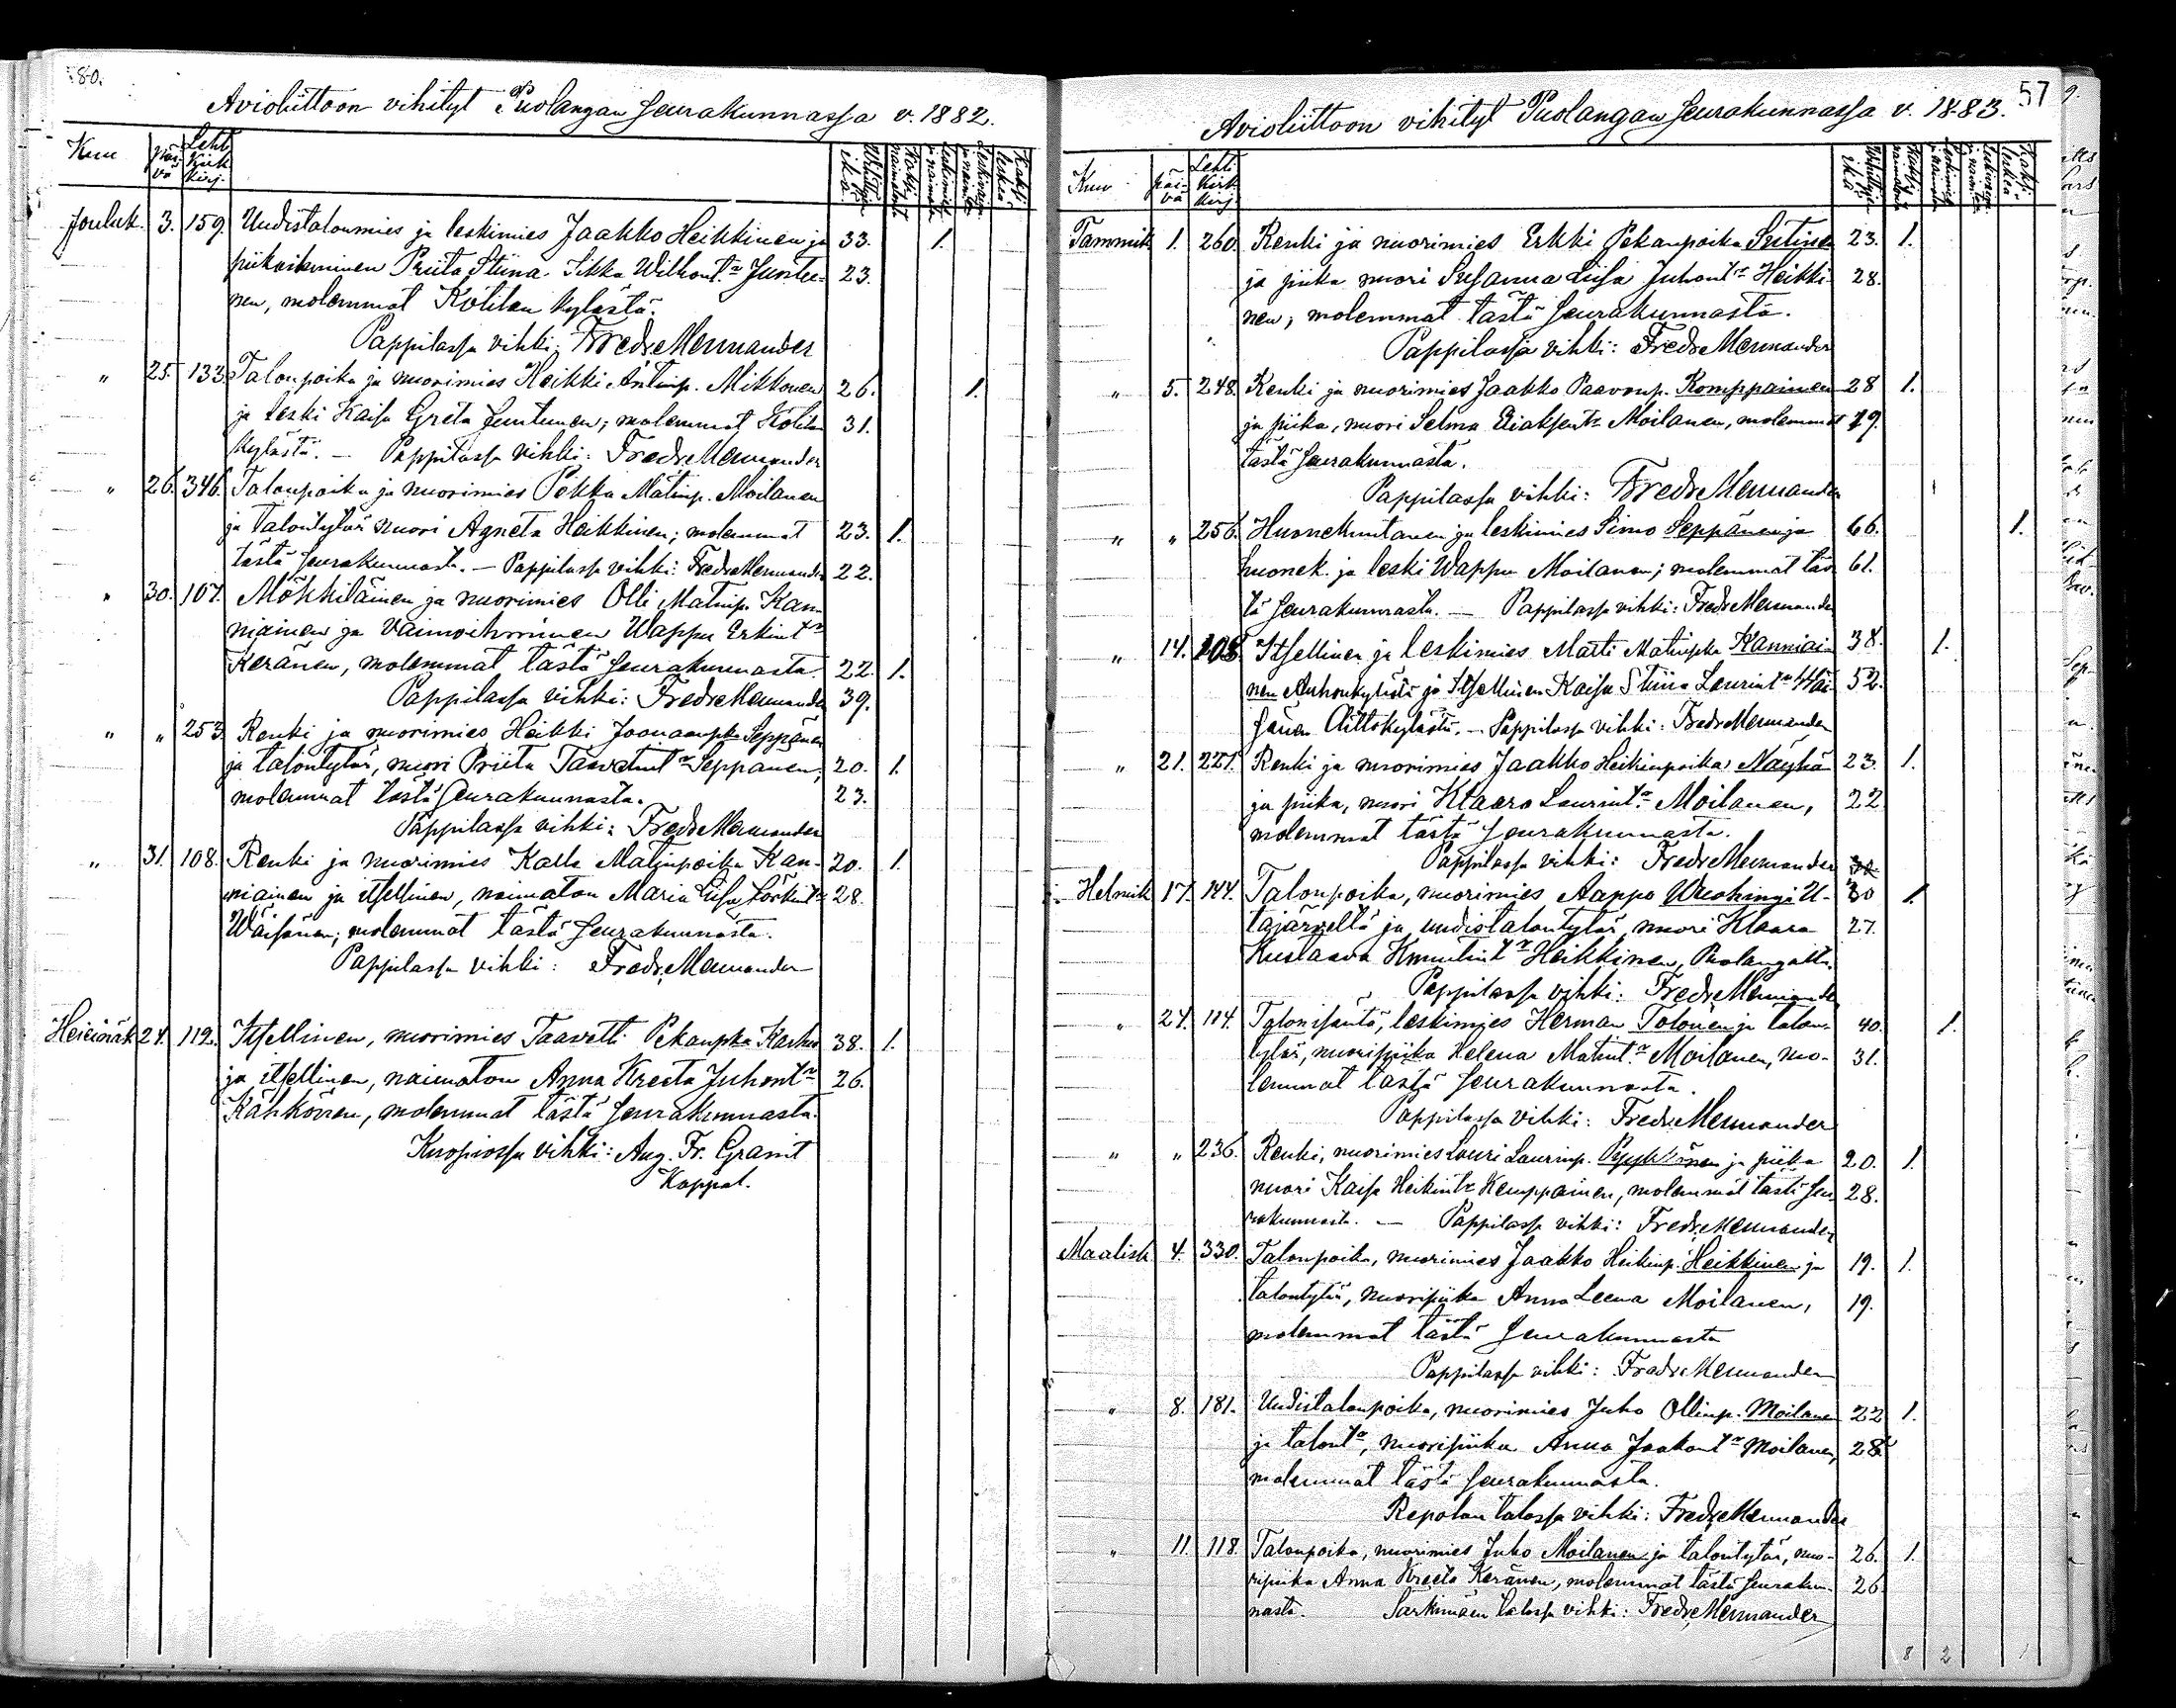 80.
Avioliittoon vihityt Puolangan seurakunnassa v. 1882.
Kuu päivä Leht. Kirk. kirj.
Jouluk. 3. 159. Uudistalonmies ja leskimies Jaakko Heikkinen ja 33. 1.
piikaihminen Priita Stiina Sikka Wilhont.r Juntu- 23.
nen, molemmat Kotilan kylästä.
Pappilassa vihki: Fredr. Mennander
" 25. 133. Talonpoika ja nuorimies Heikki Antinp. Mikkonen 26. 1.
ja leski Kaisa Greta Juntunen; molemmat Kotilan 31.
kylästä. — Pappilassa vihki: Fredr. Mennander
" 26. 346. Talonpoika ja nuorimies Pekka Matinp. Moilanen
ja talontytär nuori Agneta Heikkinen; molemmat 23. 1.
tästä seurakunnasta. — Pappilassa vihki: Fredr. Mennander 22.
" 30. 107. Mökkiläinen ja nuorimies Olli Matinp. Kan-
niainen ja vaimoihminen Wappu Erkint.r
Keränen, molemmat tästä seurakunnasta 22. 1.
Pappilassa vihki: Fredr. Mennander 39.
" " 253. Renki ja nuorimies Heikki Joonaanpka Seppänen
ja talontytär, nuori Priita Taavetint.r Seppänen, 20. 1.
molemmat tästä seurakunnasta. 23.
Pappilassa vihki: Fredr. Mennander
" 31. 108. Renki ja nuorimies Kalle Matinpoika Kan- 20. 1.
niainen ja itsellinen, naimaton Maria Liisa 28.
Wäisänen; molemmat tästä seurakunnasta.
Pappilassa vihki: Fredr. Mennander
24. 112. Itsellinen, nuorimies Taavetti Pekanpka 38. 1.
ja itsellinen, naimaton Anna Kreeta Juhont.r 26.
Kähkönen, molemmat tästä seurakunnasta.
Kuopiossa vihki: Aug. Fr. Granit
Kappal.
57
Avioliittoon vihityt Puolangan seurakunnassa v. 1883.
Kuu päivä Leht. Kirk. kirj.
Tammik. 1. 260. Renki ja nuorimies Erkki Pekanpoika Sutinen 23. 1.
ja piika nuori Susanna Liisa Juhont.r Heikki- 28.
nen; molemmat tästä seurakunnasta.
Pappilassa vihki: Fredr. Mennander
" 5. 248. Renki ja nuorimies Jaakko Paavonp. Komppainen 28 1.
ja piika, nuori Selma Moilanen, molemmat 19.
tästä seurakunnasta.
Pappilassa vihki: Fredr. Mennander
" " 256. Huonekuntanen ja leskimies Simo Seppänen ja 66. 1.
huonek. ja leski Wappu Moilanen; molemmat täs- 61.
tä seurakunnasta. — Pappilassa vihki: Fredr. Mennander
" 14. 108. Itsellinen ja leskimies Matti Matinpka Kanniai- 38. 1.
nen Auhonkylästä ja itsellinen Kaisa Stiina Laurint.r Wäi- 52.
sänen Aittokylästä. — Pappilassa vihki: Fredr. Mennander
" 21. 227. Renki ja nuorimies Jaakko Heikinpoika Näykä 23. 1.
ja piika, nuori Klaara Laurint.r Moilanen, 22
molemmat tästä seurakunnasta.
Pappilassa vihki: Fredr. Mennander
Helmik. 17. 144. Talonpoika, nuorimies Aappo Wuohingi U- 30 1.
tajärveltä ja uudistalontytär, nuori Klaara 27.
Kustaava Heikkinen, Puolangalta.
Pappilassa vihki: Fredr. Mennander
" 24. 114. Talonisäntä, leskimies Herman Tolonen ja talon- 40. 1.
tytär, nuoripiika Helena Matint.r Moilanen, mo- 31.
lemmat tästä seurakunnasta.
Pappilassa vihki: Fredr. Mennander
" " 236. Renki, nuorimies Lauri Laurinp. Pyykkönen ja piika 20. 1.
nuori Kaisa Heikint.r Kemppainen, molemmat tästä seu- 28.
rakunnasta. — Pappilassa vihki: Fredr. Mennander
Maalisk. 4. 330. Talonpoika, nuorimies Jaakko Heikinp. Heikkinen ja 19. 1.
talontytär, nuoripiika Anna Leena Moilanen, 19.
molemmat tästä seurakunnasta
Pappilassa vihki: Fredr. Mennander
" 8. 181. Uudistalonpoika, nuorimies Juho Ollinp. Moilanen 22 1.
ja talont.r, nuoripiika Anna Jaakont.r Moilanen, 28
molemmat tästä seurakunnasta.
Repolan talossa vihki: Fredr. Mennander
" 11. 118. Talonpoika, nuorimies Juho Moilanen ja talontytär, nuo- 26. 1.
ripiika Anna Kreeta Keränen, molemmat tästä seurakun- 26
nasta. Särkimäen talossa vihki: Fredr. Mennander
8 2 1